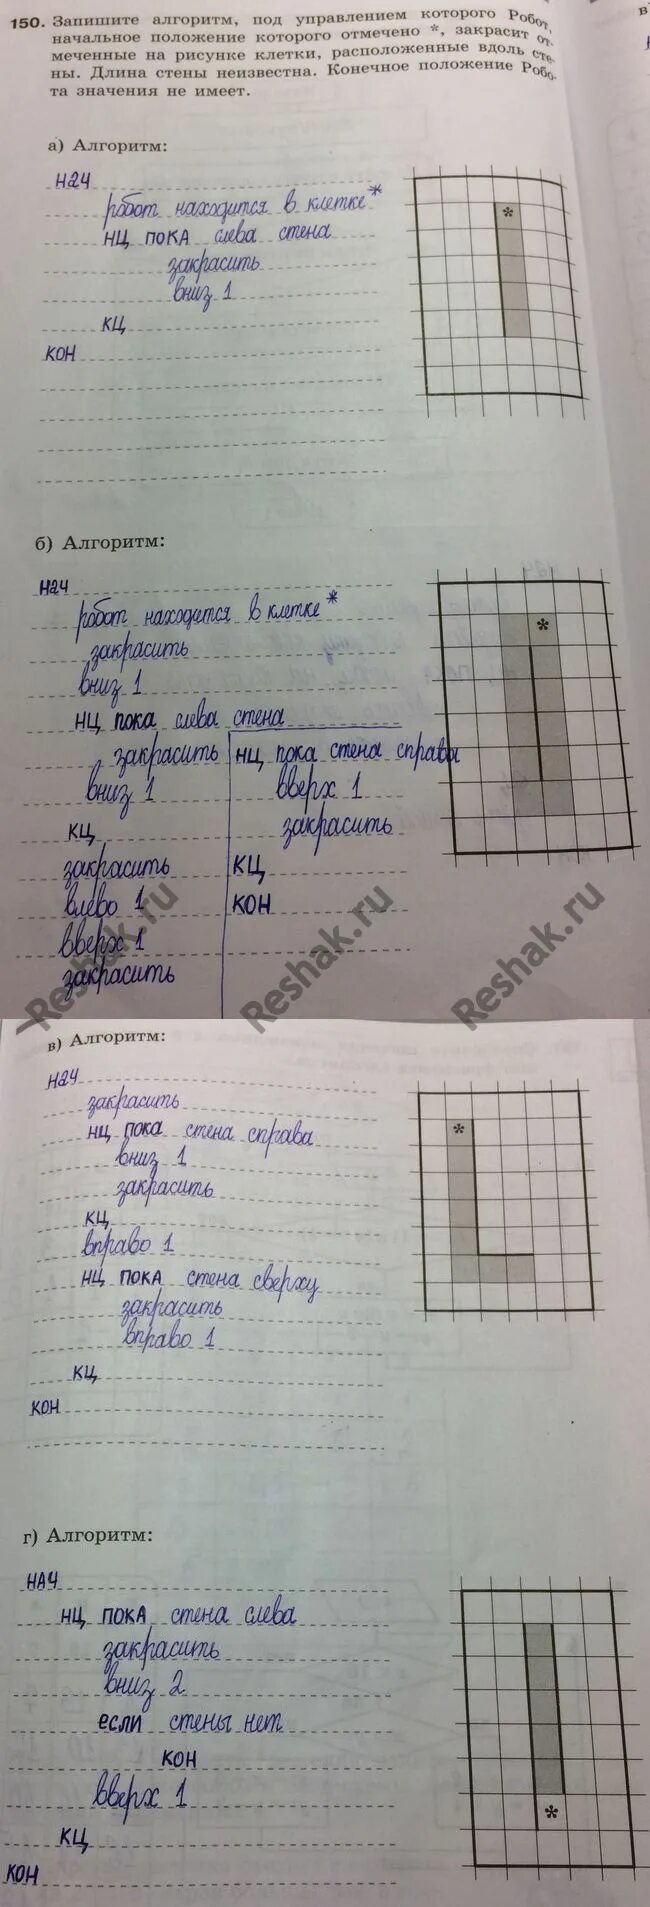 150. Запишите алгоритм, под управлением которого Робот,
начальное положение которого отмечено *, закрасит от-
меченные на рисунке клетки, расположенные вдоль сте-
ны. Длина стены неизвестна. Конечное положение Робо-
та значения не имеет.
а) Алгоритм:
нач
робот находится в клетке *
нц пока слева стена
закрасить
вниз 1
кц
кон
*
б) Алгоритм:
нач
робот находится в клетке *
закрасить
вниз 1
нц пока слева стена
закрасить
вниз 1
кц
закрасить
влево 1
вверх 1
закрасить
нц пока стена справа
вверх 1
закрасить
кц
кон
*
Reshak.ru
Reshak.ru
Reshak.ru
в) Алгоритм:
нач
закрасить
нц пока стена справа
вниз 1
закрасить
кц
вправо 1
нц пока стена сверху
закрасить
вправо 1
кц
кон
*
г) Алгоритм:
нач
нц пока стена слева
закрасить
вниз 2
если стены нет
кон
вверх 1
кц
кон
*